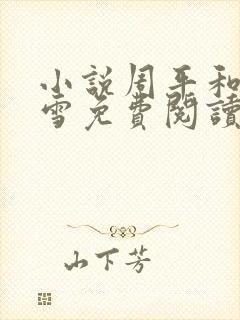 小説周平和
雪免費閱讀
山下芳